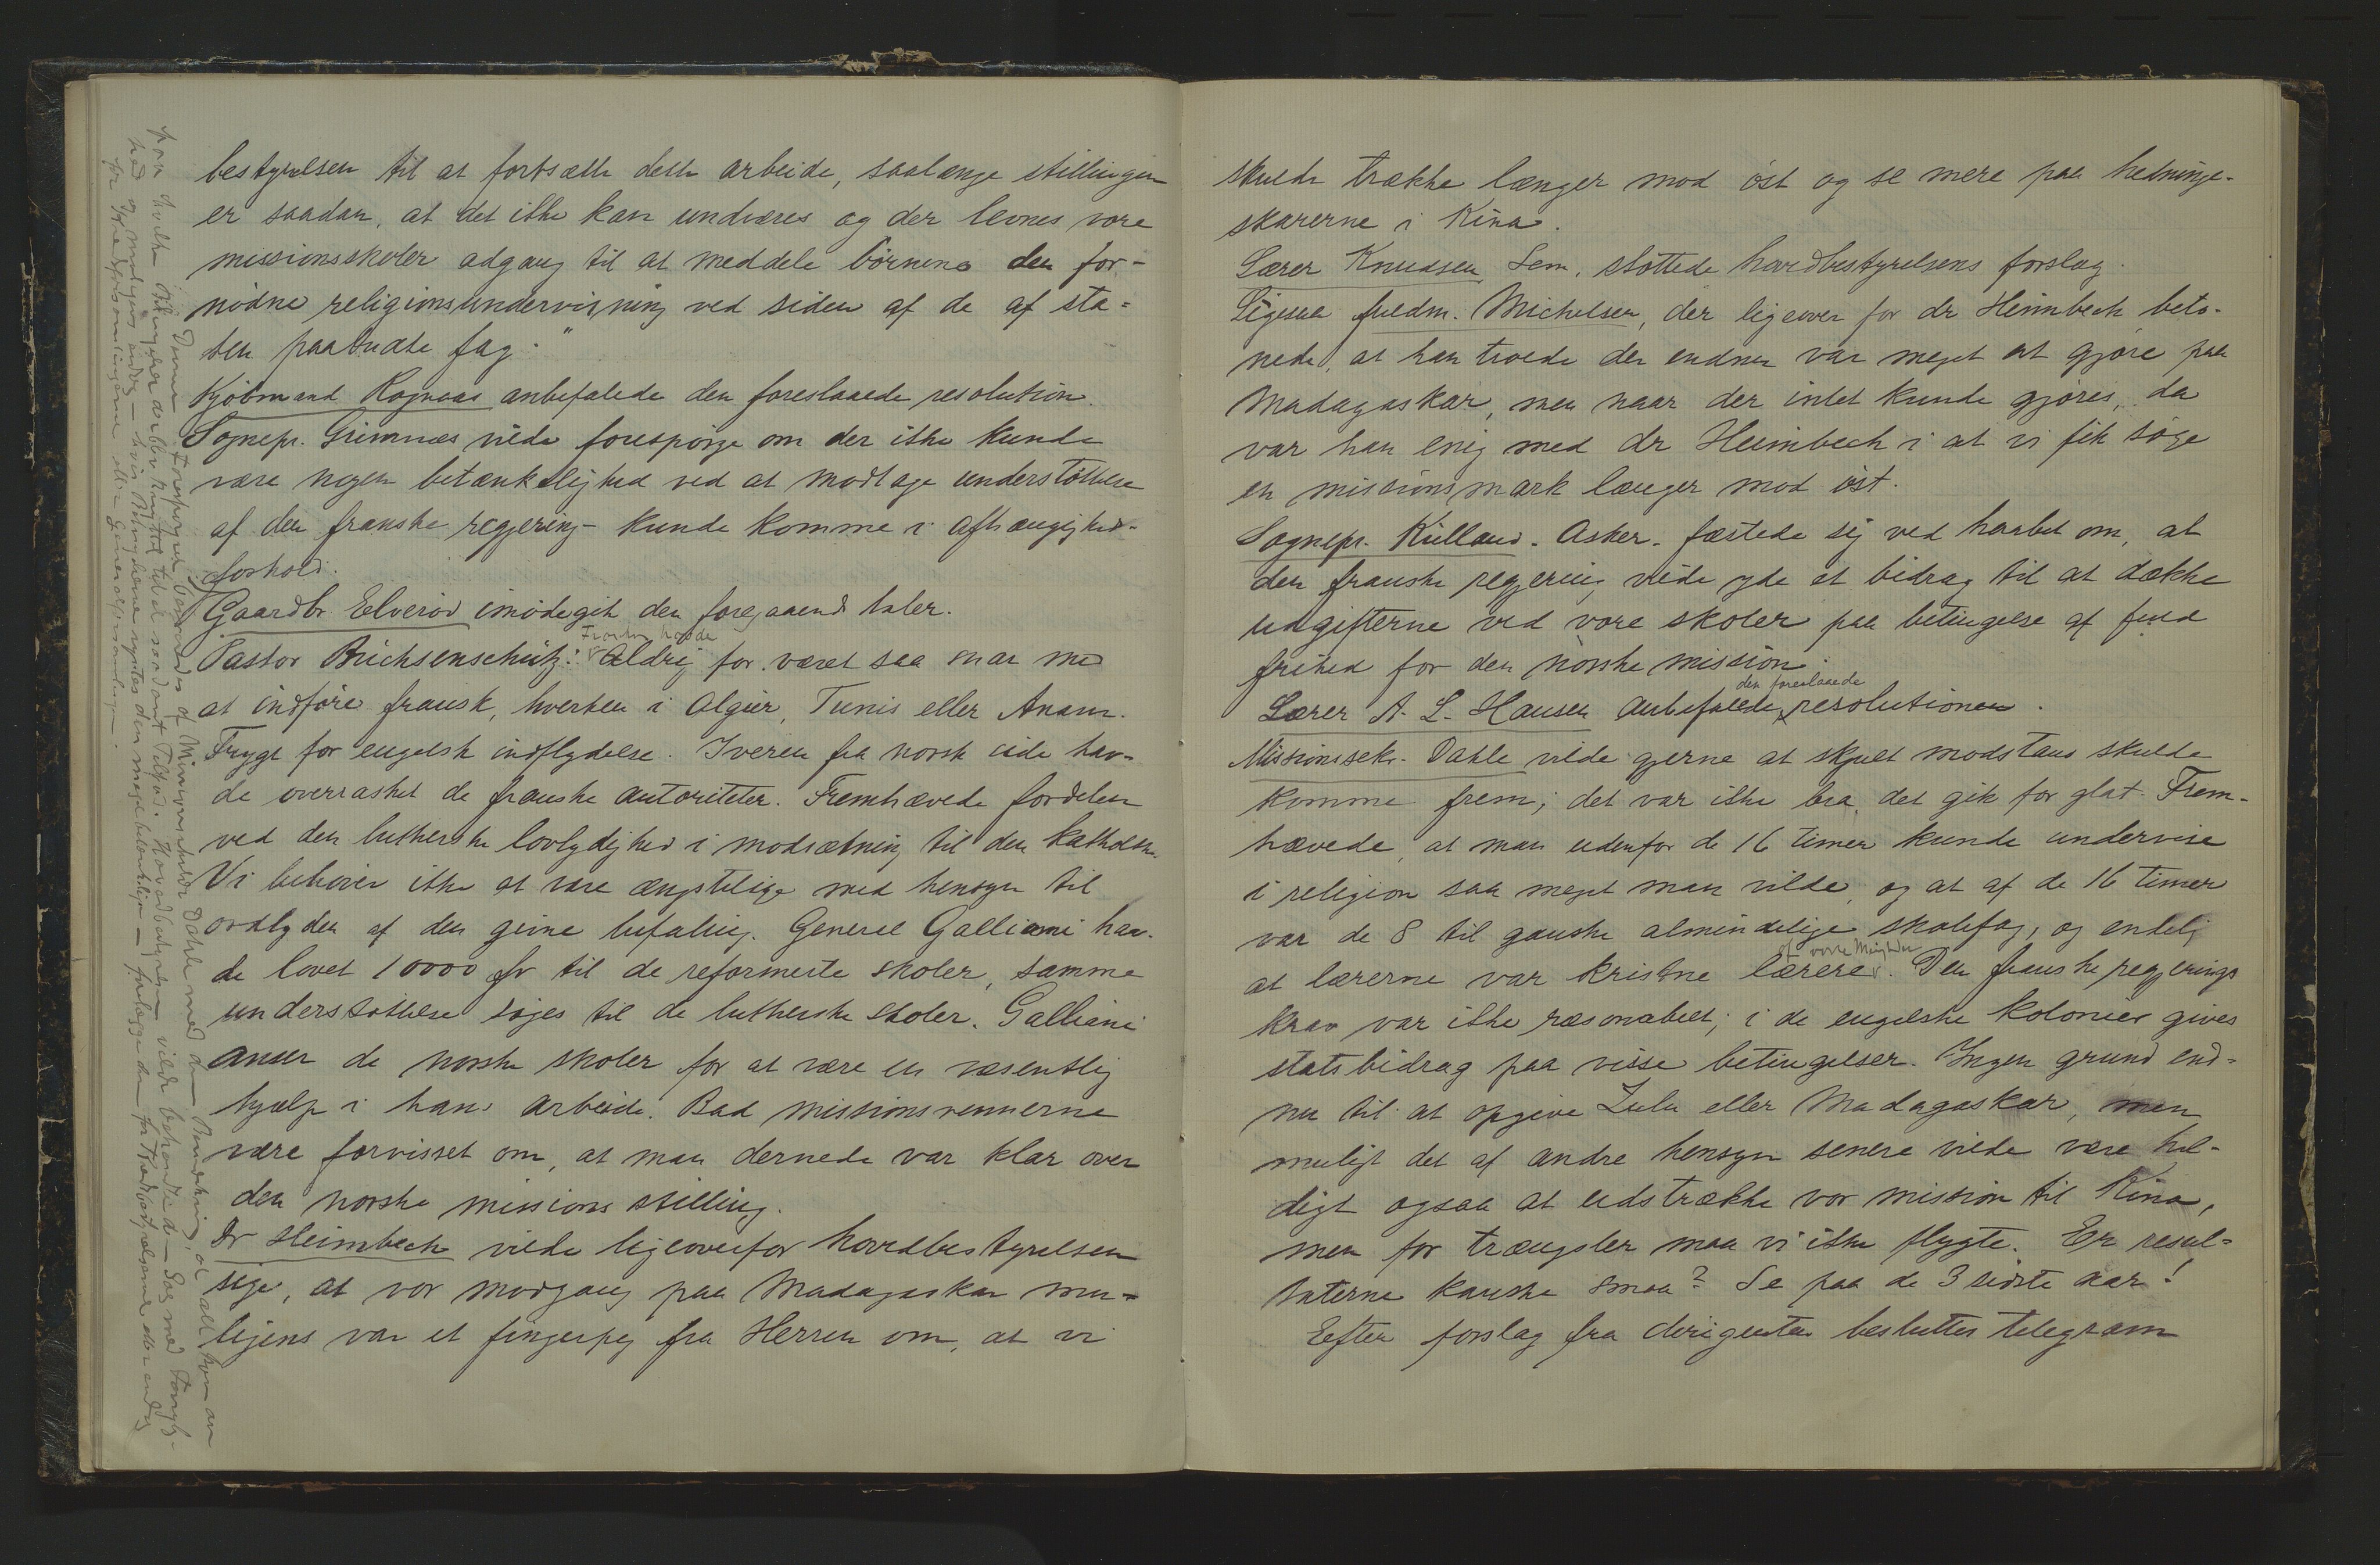 bestyrelsen til at fortsætte dette arbeide, saalænge stillingen
er saadan, at det ikke kan undværes og der levnes vore
missionsskoler adgang til at meddele börnene den for-
nödne religionsundervisning ved siden af de af sta-
ten paabudte fag."
Kjöbmand Rognaas anbefalede den foreslaaede resolution.
Sognepr. Grimnæs vilde forespörge om der ikke kunde
være nogen betænkelighed ved at modtage understöttelse
af den franske regjering - kunde komme i afhængigheds-
forhold.
Gaardbr. Elveröd imödegik den foregaaende taler.
Franskm. havde
Pastor Buchsenschütz: Aldrig för været saa snar med
at indföre fransk, hverken i Algier, Tunis eller Anam.
Frygt for engelsk indflydelse. Iveren fra norsk side hav-
de overrasket de franske autoriteter. Fremhævede fordelen
ved den lutherske lovlydighed i modsætning til den katholske.
Vi behöver ikke at være ængstelige med hensyn til
ordlyden af den givne befaling. General Galliani hav-
de lovet 10000 fr til de reformerte skoler, samme
understöttelse söges til de lutherske skoler. Galliani
anser de norske skoler for at være en væsentlig
hjælp i hans arbeide. Bad missionsvennerne
være forvisset om, at man dernede var klar over
den norske missions stilling.
Dr Heimbeck vilde ligeoverfor hovedbestyrelsen
sige, at vor modgang paa Madagaskar mu-
ligens var et fingerpeg fra Herren om, at vi
Denne Forespörgsel besvaredes af Missionssekretær Dahle med den Bemærkning, at
for Kredsforsamlingerne eller Generalforsamlingen.
skulde trække længer mod öst og se mere paa hedninge-
skarerne i Kina.
Lærer Knudsen Sem, stöttede hovedbestyrelsens forslag.
Ligesaa fuldm. Michelsen, der ligeover for dr Heimbeck beto-
nede, at han troede der endnu var meget at gjöre paa
Madagaskar, men naar der intet kunde gjöres, da
var han enig med dr Heimbeck i at vi fik söge
en missionsmark længer mod öst.
Sognepr. Kielland. Asker. fæstede sig ved haabet om, at
den franske regjering vilde yde et bidrag til at dække
udgifterne ved vore skoler paa betingelse af fuld
frihed for den norske mission.
den foreslaaede
Lærer A. L. Hansen anbefalede resolutionen.
Missionssekr. Dahle vilde gjerne at skjult modstand skulde
komme frem; det var ikke bra, det gik for glat. Frem-
hævede, at man udenfor de 16 timer kunde undervise
i religion saa meget man vilde, og at af de 16 timer
var de 8 til ganske almindelige skolefag, og endelig
af vore Menigheder
at lærerne var kristne lærere. Den franske regjerings
krav var ikke ræsonabelt; i de engelske kolonier gives
statsbidrag paa visse betingelser. Ingen grund end-
nu til at opgive Zulu eller Madagaskar, men
muligt det af andre hensyn senere vilde være hel-
digt ogsaa at udstrække vor mission til Kina,
men for trængsler maa vi ikke flygte. Er resul-
taterne kanske smaa? Se paa de 3 sidste aar!
Efter forslag fra dirigenten besluttes telegram